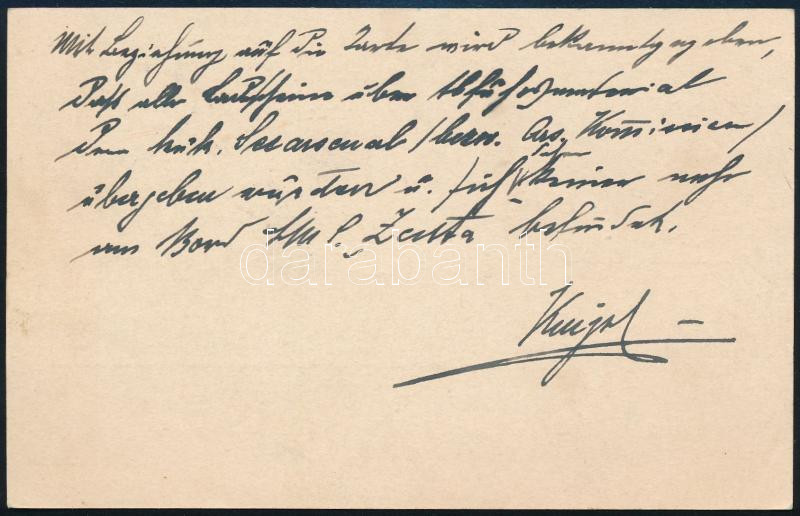 Mit Beziehung auf die Karte wird bekanntgegeben,
daß alle Laufscheine über Abfuhrsmaterial
dem k.u.k. Seearsenal /bezw. Ars. Kommission/
übergeben wurden u. sich keiner mehr
an Bord SMS Zenta befindet.
darabanth